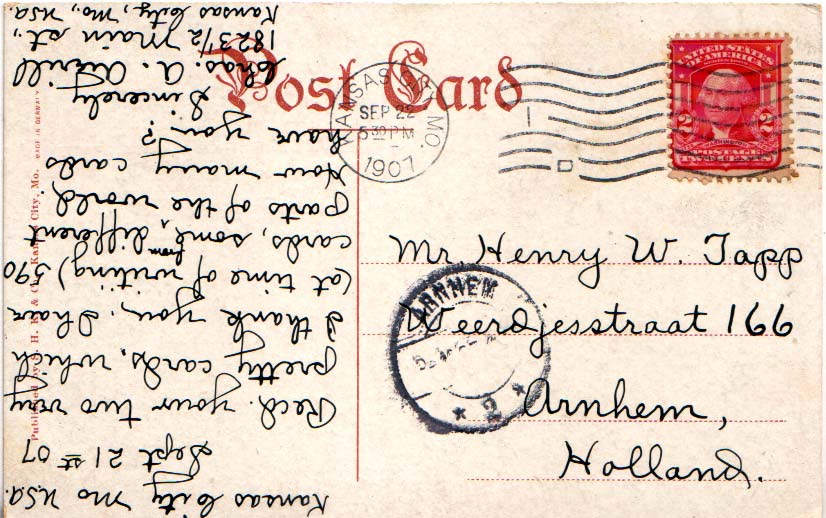 Post Card
KANSAS CITY, MO.
SEP 22
5 30 PM
1907
UNITED STATES
OF AMERICA
2 2
WASHINGTON
POSTAGE
TWO CENTS
Mr Henry W. Tapp
Weerdjesstraat 166
Arnhem,
Holland.
ARNHEM
* 2 *
Kansas City Mo USA.
Sept 21st 07
Recd. your two very
pretty cards, which
I thank you, I have
(at time of writing) 590
cards, some from different
parts of the world,
How many cards
have you?
Sincerely
Chas. A. Averill
1823 1/2 Main st.,
Kansas City, Mo., USA.
Published by H. K. & Co., Kansas City, Mo. MADE IN GERMANY